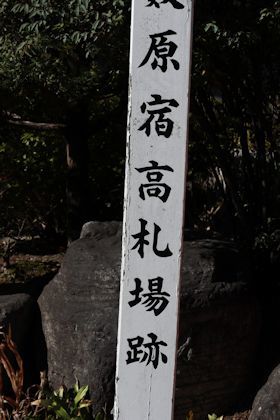 原宿高札場跡